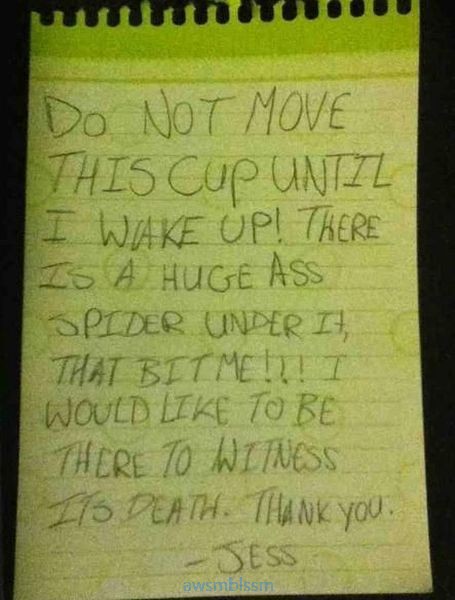 DO NOT MOVE
THIS CUP UNTIL
I WAKE UP! THERE
IS A HUGE ASS
SPIDER UNDER IT,
THAT BIT ME!!! I
WOULD LIKE TO BE
THERE TO WITNESS
ITS DEATH. THANK YOU.
- JESS
awsmblssm